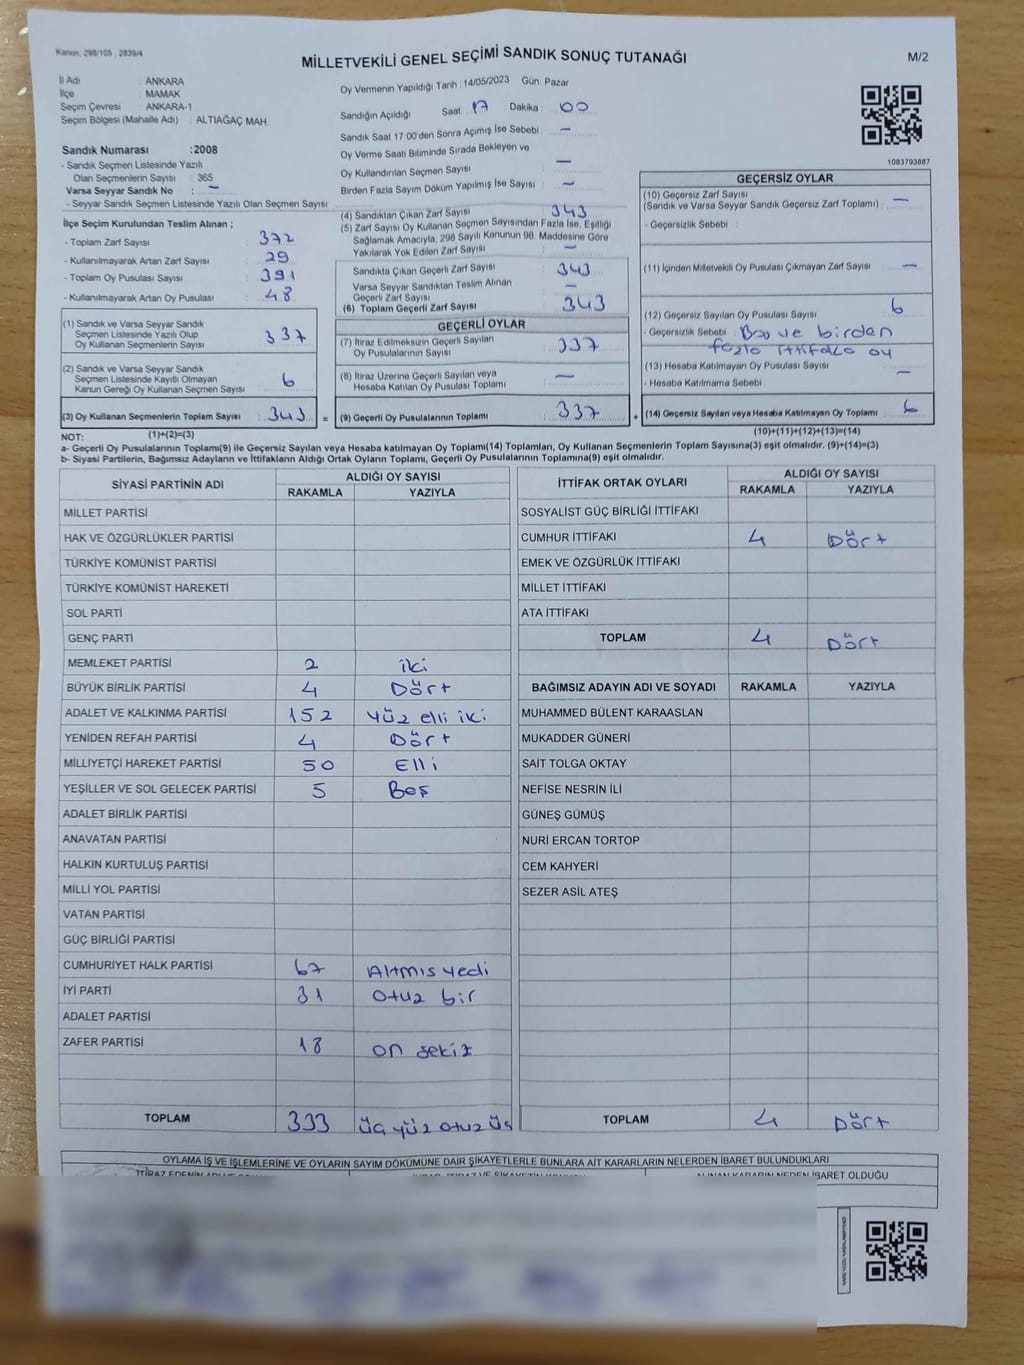 Kanun, 298/105 , 2839/4
MİLLETVEKİLİ GENEL SEÇİMİ SANDIK SONUÇ TUTANAĞI
M/2
İl Adı : ANKARA
İlçe : MAMAK
Seçim Çevresi : ANKARA-1
Seçim Bölgesi (Mahalle Adı) : ALTIAĞAÇ MAH.
Oy Vermenin Yapıldığı Tarih : 14/05/2023 Gün: Pazar
Sandığın Açıldığı Saat : 17 Dakika : 00
Sandık Saat 17:00'den Sonra Açılmış İse Sebebi : –
Oy Verme Saati Bitiminde Sırada Bekleyen ve
Oy Kullandırılan Seçmen Sayısı : –
Birden Fazla Sayım Döküm Yapılmış İse Sayısı : –
1083793887
Sandık Numarası : 2008
- Sandık Seçmen Listesinde Yazılı
Olan Seçmenlerin Sayısı : 365
Varsa Seyyar Sandık No : –
- Seyyar Sandık Seçmen Listesinde Yazılı Olan Seçmen Sayısı
İlçe Seçim Kurulundan Teslim Alınan ;
- Toplam Zarf Sayısı : 372
- Kullanılmayarak Artan Zarf Sayısı : 29
- Toplam Oy Pusulası Sayısı : 391
- Kullanılmayarak Artan Oy Pusulası : 48
(1) Sandık ve Varsa Seyyar Sandık
Seçmen Listesinde Yazılı Olup
Oy Kullanan Seçmenlerin Sayısı : 337
(2) Sandık ve Varsa Seyyar Sandık
Seçmen Listesinde Kayıtlı Olmayan
Kanun Gereği Oy Kullanan Seçmen Sayısı : 6
(3) Oy Kullanan Seçmenlerin Toplam Sayısı : 343 =
(1)+(2)=(3)
(4) Sandıktan Çıkan Zarf Sayısı : 343
(5) Zarf Sayısı Oy Kullanan Seçmen Sayısından Fazla İse, Eşitliği
Sağlamak Amacıyla, 298 Sayılı Kanunun 98. Maddesine Göre
Yakılarak Yok Edilen Zarf Sayısı : –
Sandıkta Çıkan Geçerli Zarf Sayısı : 343
Varsa Seyyar Sandıktan Teslim Alınan
Geçerli Zarf Sayısı : –
(6) Toplam Geçerli Zarf Sayısı : 343
GEÇERLİ OYLAR
(7) İtiraz Edilmeksizin Geçerli Sayılan
Oy Pusulalarının Sayısı : 337
(8) İtiraz Üzerine Geçerli Sayılan veya
Hesaba Katılan Oy Pusulası Toplamı : –
(9) Geçerli Oy Pusulalarının Toplamı : 337 +
GEÇERSİZ OYLAR
(10) Geçersiz Zarf Sayısı
(Sandık ve Varsa Seyyar Sandık Geçersiz Zarf Toplamı) : –
- Geçersizlik Sebebi :
(11) İçinden Milletvekili Oy Pusulası Çıkmayan Zarf Sayısı : –
(12) Geçersiz Sayılan Oy Pusulası Sayısı : 6
- Geçersizlik Sebebi : Boş ve birden
fazla ittifaka oy
(13) Hesaba Katılmayan Oy Pusulası Sayısı : –
- Hesaba Katılmama Sebebi :
(14) Geçersiz Sayılan veya Hesaba Katılmayan Oy Toplamı : 6
(10)+(11)+(12)+(13)=(14)
NOT:
a- Geçerli Oy Pusulalarının Toplamı(9) ile Geçersiz Sayılan veya Hesaba katılmayan Oy Toplamı(14) Toplamları, Oy Kullanan Seçmenlerin Toplam Sayısına(3) eşit olmalıdır. (9)+(14)=(3)
b- Siyasi Partilerin, Bağımsız Adayların ve İttifakların Aldığı Oyların Toplamı, Geçerli Oy Pusulalarının Toplamına(9) eşit olmalıdır.
SİYASİ PARTİNİN ADI ALDIĞI OY SAYISI
RAKAMLA YAZIYLA
MİLLET PARTİSİ
HAK VE ÖZGÜRLÜKLER PARTİSİ
TÜRKİYE KOMÜNİST PARTİSİ
TÜRKİYE KOMÜNİST HAREKETİ
SOL PARTİ
GENÇ PARTİ
MEMLEKET PARTİSİ 2 iki
BÜYÜK BİRLİK PARTİSİ 4 Dört
ADALET VE KALKINMA PARTİSİ 152 yüz elli iki
YENİDEN REFAH PARTİSİ 4 Dört
MİLLİYETÇİ HAREKET PARTİSİ 50 Elli
YEŞİLLER VE SOL GELECEK PARTİSİ 5 Beş
ADALET BİRLİK PARTİSİ
ANAVATAN PARTİSİ
HALKIN KURTULUŞ PARTİSİ
MİLLİ YOL PARTİSİ
VATAN PARTİSİ
GÜÇ BİRLİĞİ PARTİSİ
CUMHURİYET HALK PARTİSİ 67 Altmış yedi
İYİ PARTİ 31 otuz bir
ADALET PARTİSİ
ZAFER PARTİSİ 18 on sekiz
TOPLAM 333 üç yüz otuz üç
İTTİFAK ORTAK OYLARI ALDIĞI OY SAYISI
RAKAMLA YAZIYLA
SOSYALİST GÜÇ BİRLİĞİ İTTİFAKI
CUMHUR İTTİFAKI 4 Dört
EMEK VE ÖZGÜRLÜK İTTİFAKI
MİLLET İTTİFAKI
ATA İTTİFAKI
TOPLAM 4 Dört
BAĞIMSIZ ADAYIN ADI VE SOYADI RAKAMLA YAZIYLA
MUHAMMED BÜLENT KARAASLAN
MUKADDER GÜNERİ
SAİT TOLGA OKTAY
NEFİSE NESRİN İLİ
GÜNEŞ GÜMÜŞ
NURİ ERCAN TORTOP
CEM KAHYERİ
SEZER ASİL ATEŞ
TOPLAM 4 Dört
OYLAMA İŞ VE İŞLEMLERİNE VE OYLARIN SAYIM DÖKÜMÜNE DAİR ŞİKAYETLERLE BUNLARA AİT KARARLARIN NELERDEN İBARET BULUNDUKLARI
ALINAN KARARIN NEDEN İBARET OLDUĞU